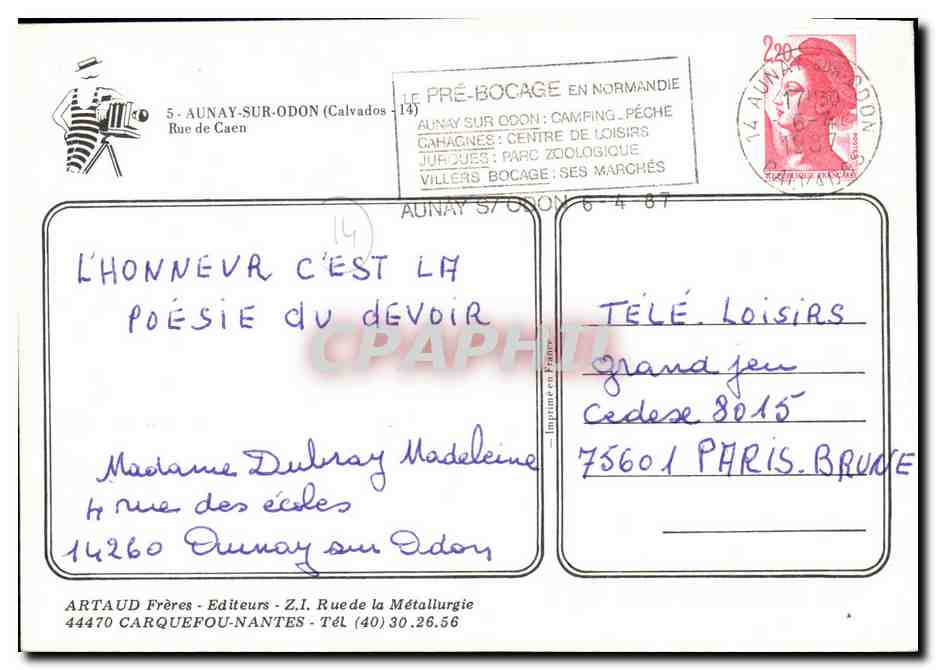 5 - AUNAY-SUR-ODON (Calvados - 14)
Rue de Caen
LE PRÉ-BOCAGE EN NORMANDIE
AUNAY SUR ODON : CAMPING_PÊCHE
CAHAGNES : CENTRE DE LOISIRS
JURQUES : PARC ZOOLOGIQUE
VILLERS BOCAGE : SES MARCHÉS
AUNAY S/ ODON 6 - 4 87
2,20
14 AUNAY SUR ODON
CALVADOS
14
L'HONNEUR C'EST LA
POÉSIE dU dEVOIR
Madame Dubray Madeleine
4 rue des écoles
14260 Aunay sur Odon
CPAPHIL
Imprimé en France
TÉLÉ. LOISIRS
grand jeu
Cedese 8015
75601 PARIS. BRUNE
ARTAUD Frères - Editeurs - Z.I. Rue de la Métallurgie
44470 CARQUEFOU-NANTES - Tél. (40) 30.26.56